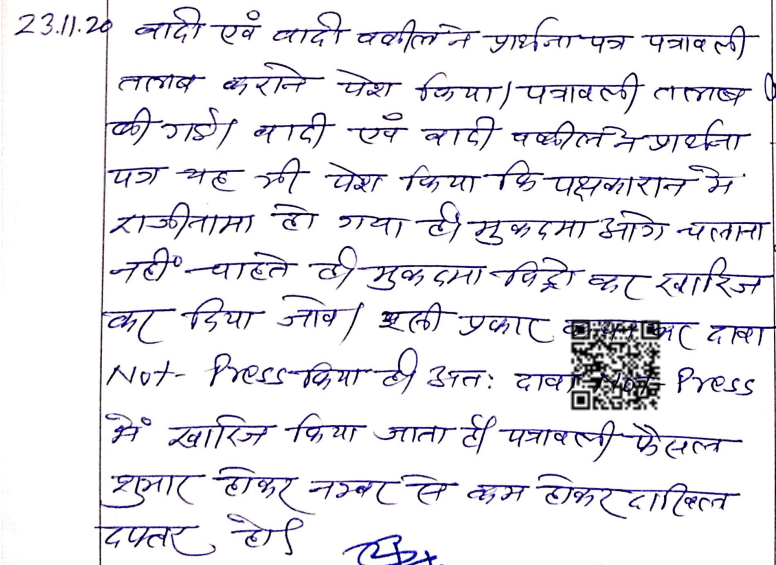 23.11.20 वादी एवं वादी वकील ने प्रार्थना पत्र पत्रावली
तलब कराने पेश किया। पत्रावली तलब
की गई। वादी एवं वादी वकील ने प्रार्थना
पत्र यह भी पेश किया कि पक्षकारान में
राजीनामा हो गया है। मुकदमा आगे चलाना
नहीं चाहते है। मुकदमा विड्रो कर खारिज
कर दिया जावे। इसी प्रकार कर दावा
Not- Press किया है। अतः दावा Not- Press
में खारिज किया जाता है। पत्रावली फैसल
शुमार होकर नम्बर से कम होकर दाखिल
दफ्तर हो।